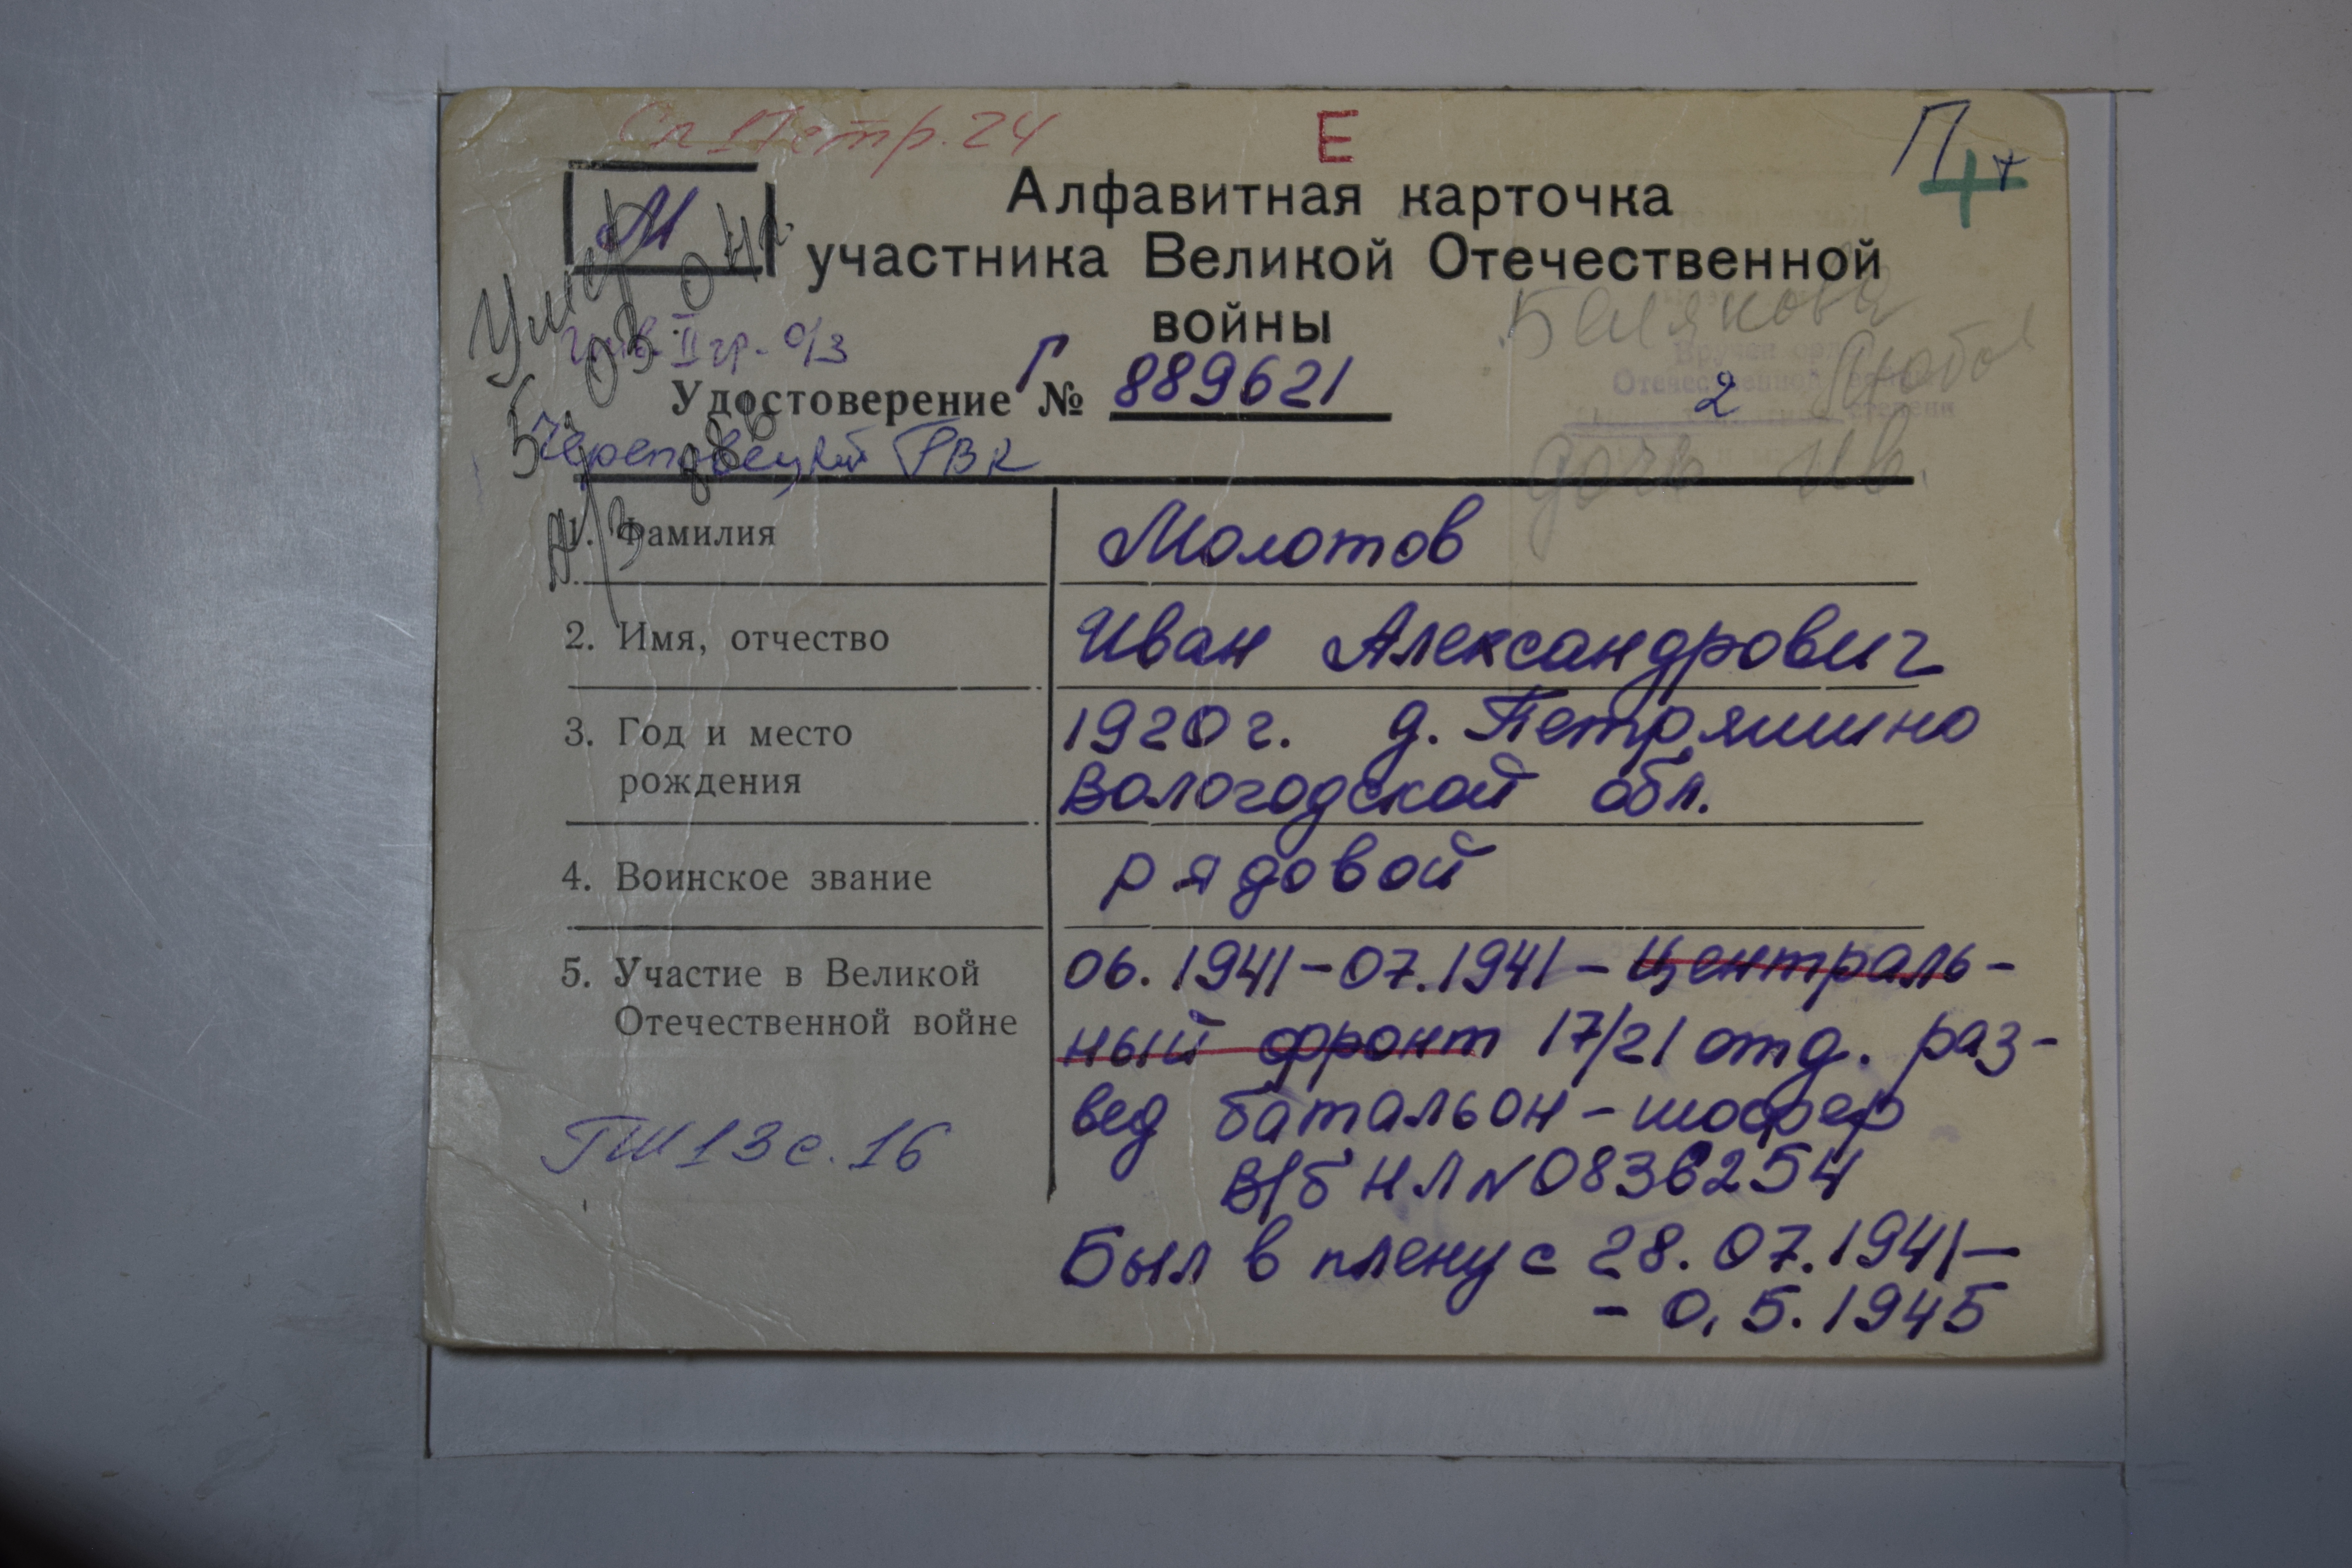 Сп 17 стр. 24
Е
П +
М
Алфавитная карточка
участника Великой Отечественной
войны
Умер
04г.
инв. II гр. о/з
Белякова
Любовь
дочь Ив.
2
Удостоверение Г № 889621
Череповецкий РВК
1. Фамилия
Молотов
2. Имя, отчество
Иван Александрович
3. Год и место
рождения
1920 г. д. Петряшино
Вологодской обл.
4. Воинское звание
рядовой
5. Участие в Великой
Отечественной войне
06.1941-07.1941-Централь-
ный фронт 17/21 отд. раз-
вед батальон-шофер
В/б НЛ N 0836254
Был в плену с 28.07.1941-
-0,5.1945
ГШ 13 с. 16